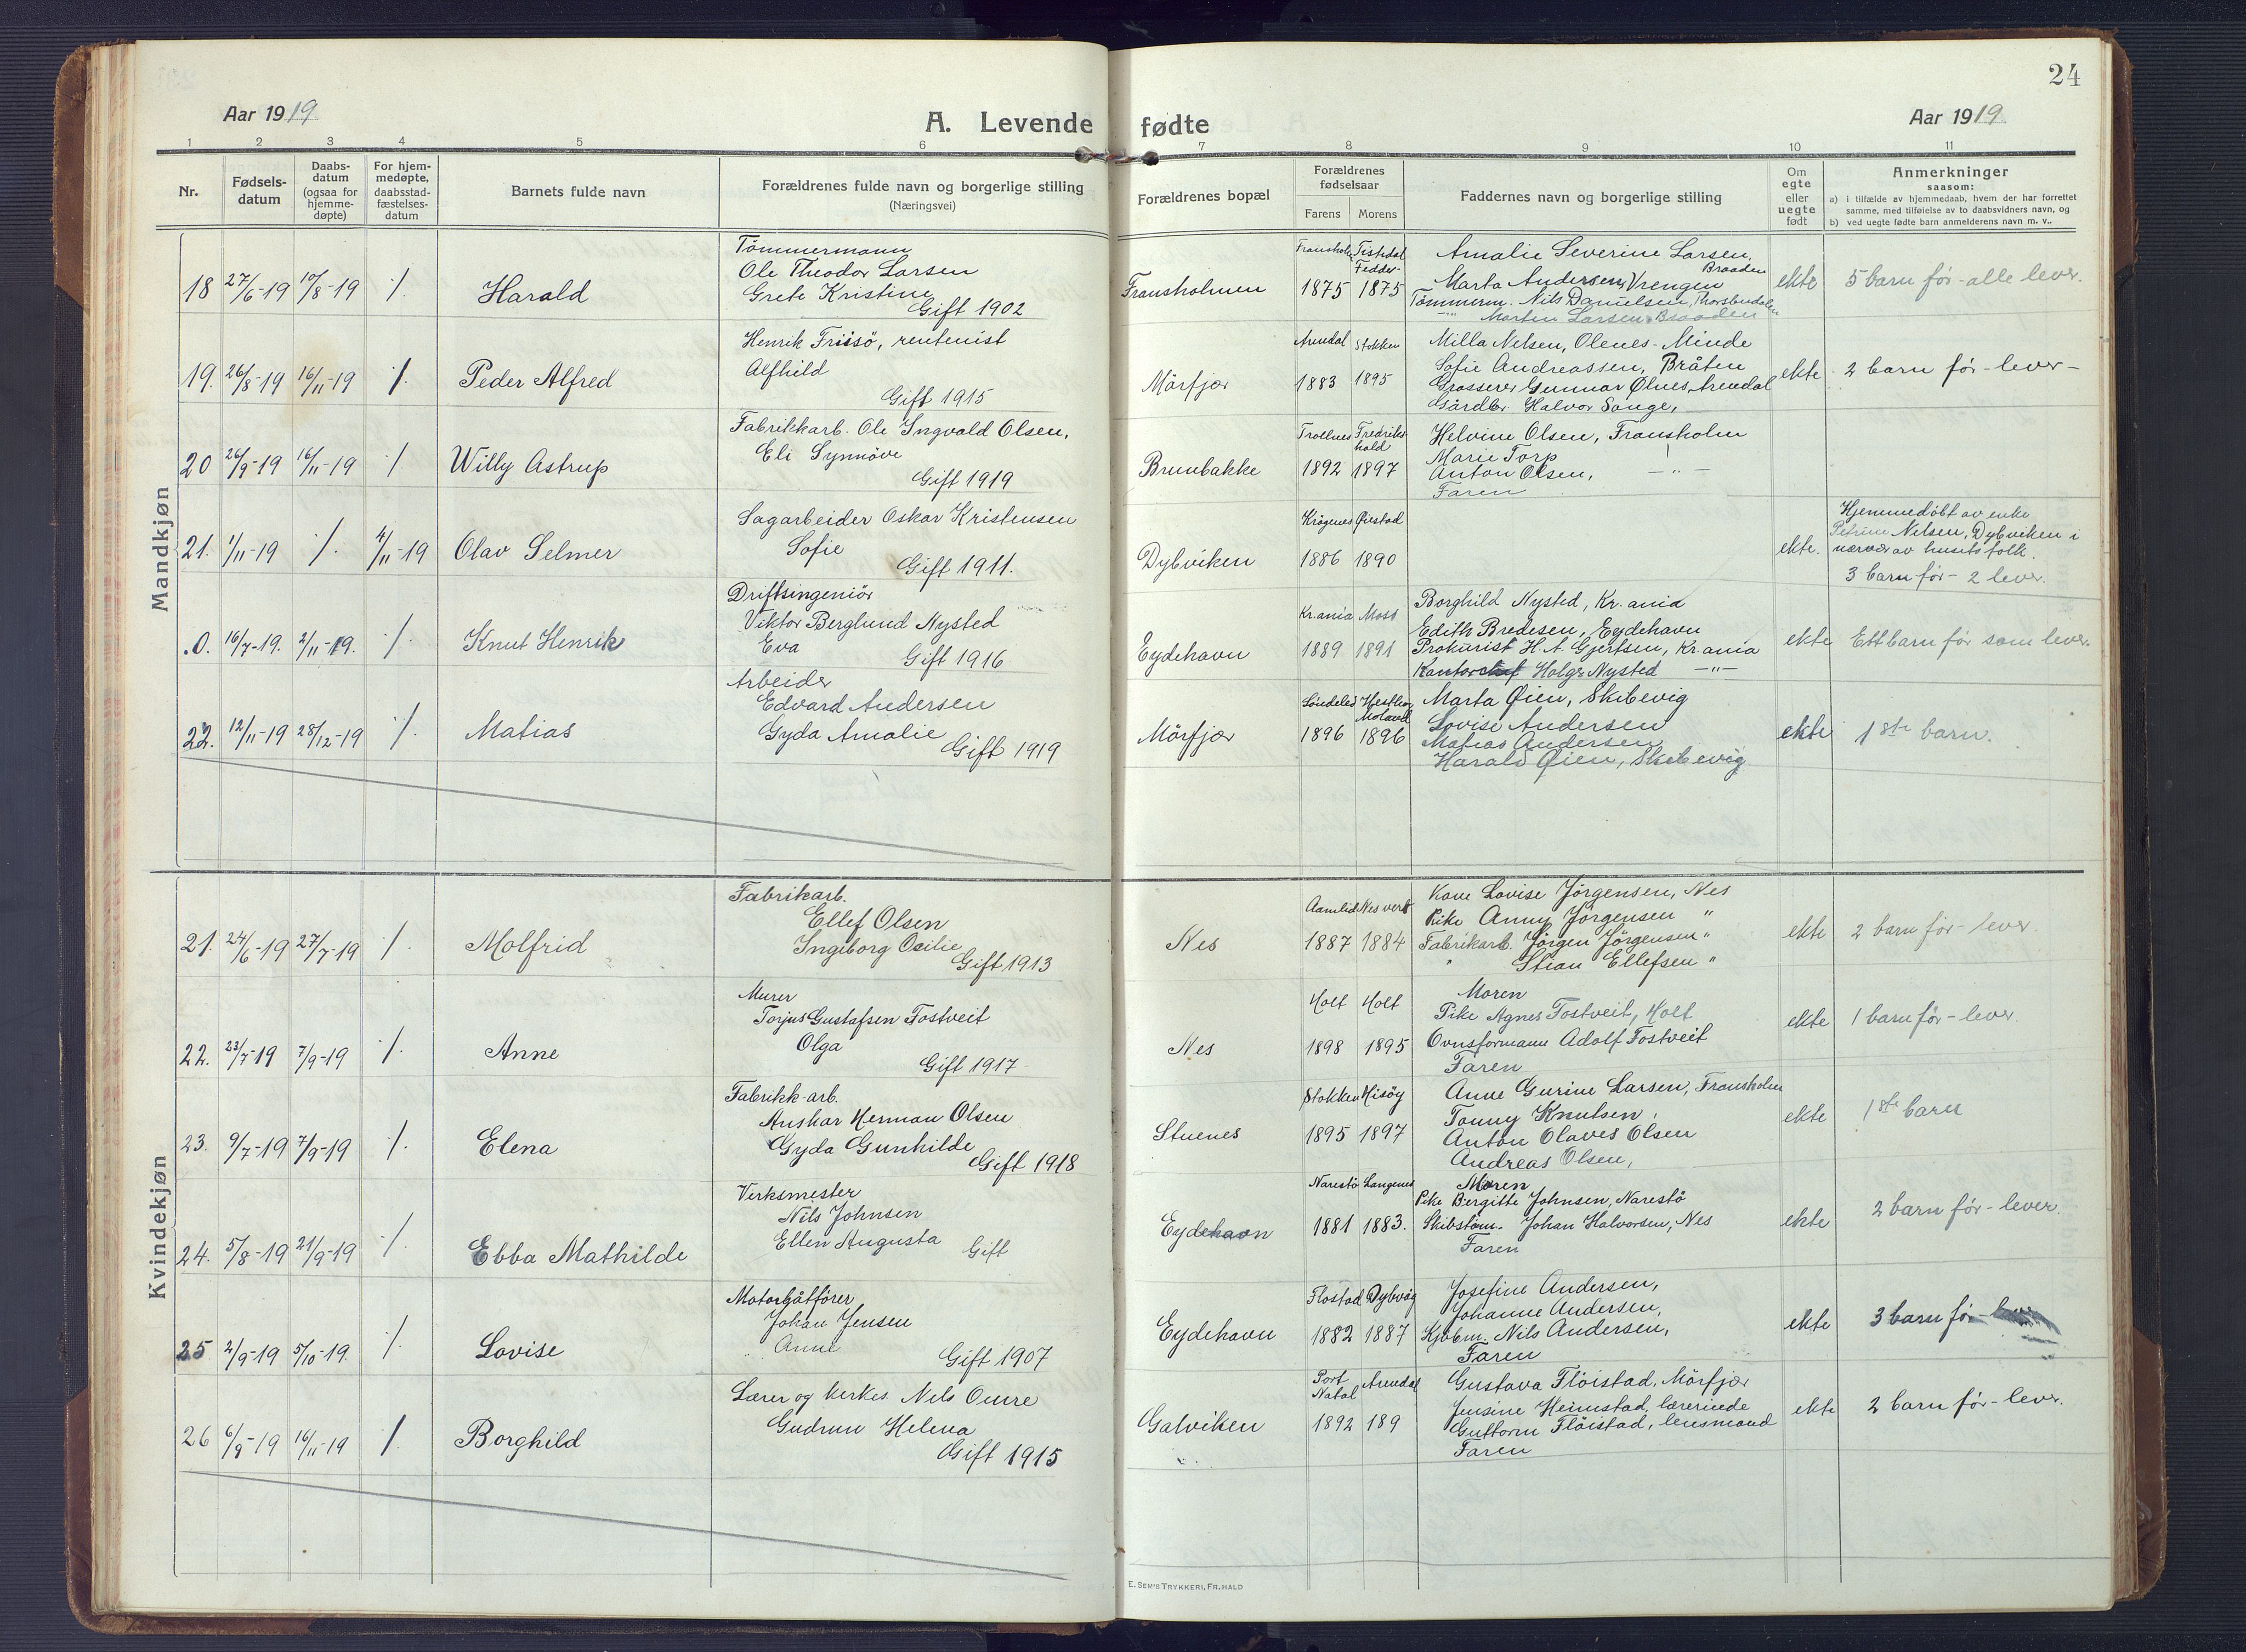 24
Aar 1919
A. Levende fødte
Aar 1919
1 2 3 4 5 6 7 8 9 10 11
Nr.
Fødsels-
datum
Daabs-
datum
(ogsaa for
hjemme-
døpte)
For hjem-
medøpte,
daabsstad-
fæstelses-
datum
Barnets fulde navn
Forældrenes fulde navn og borgerlige stilling
(Næringsvei)
Forældrenes bopæl
Forældrenes
fødselsaar
Farens Morens
Faddernes navn og borgerlige stilling
Om
egte
eller
uegte
født
Anmerkninger
saasom:
a) i tilfælde av hjemmedaab, hvem der har forrettet
samme, med tilføielse av to daabsvidners navn, og
b) ved uegte fødte barn anmelderens navn m. v..
Mandkjøn
18 27/6-19 10/8-19 ⁒ Harald
Tömmermann
Ole Theodor Larsen
Grete Kristine
Gift 1902
Fransholmen
1875 1875
Amalie Severine Larsen,
Braaden
Marta Andersen, Vrengen
Tömmerm. Nils Danielsen,
Martin Larsen Braaden
ekte
5 barn før - alle lever.
19. 26/8-19 16/11-19 ⁒ Peder Alfred
Henrik Friisö, rentenist
Alfhild
Gift 1915
Mörfjær
Arendal Stokken
1883 1895
Milla Nelsen, Olenes - Minde
Sofie Andreassen, Bråten
Grosserer Gunnar Ølnes, Arendal
Gårdbr. Halvor Songe,
ekte
2 barn før - lever -
20 26/9-19 16/11-19 ⁒ Willy Astrup
Fabrikkarb. Ole Ingvald Olsen,
Eli Synnöve
Gift 1919
Brunbakke
Trollnes Fredriks-
hald
1892 1897
Helvine Olsen, Fransholm
Marie Torp
Anton Olsen, - " -
Faren
21. 1/11-19 ⁒ 4/11-19 Olav Selmer
Sagarbeider Oskar Kristensen
Sofie
Gift 1911.
Dybviken
Krögenes Øiestad
1886 1890
ekte.
Hjemmedöbt av enke
Petrine Nilsen, Dybviken i
nærvær av husets folk.
3 barn før - 2 lever.
.0. 16/7-19. 2/11-19. ⁒ Knut Henrik
Driftsingeniör
Viktor Berglund Nysted
Eva
Gift 1916
Eydehavn
Kr.ania Moss
1889 1891
Borghild Nysted, Kr.ania
Edith Bredesen, Eydehavn
Prokurist H. A. Gjertsen, Kr.ania
Kontorchef Holgr Nysted - " -
ekte
Ett barn før som lever.
22. 12/11-19 28/12-19 ⁒ Matias
Arbeider
Edvard Andersen
Gyda Amalie
Gift 1919
Mörfjær
Söndeled
1896 1896
Marta Øien, Skibevig
Lovise Andersen
Matias Andersen
Harald Øien, Skibevig
ekte
1ste barn.
Kvindekjøn
21. 24/6-19 27/7-19 ⁒ Molfrid
Fabrikarb.
Ellef Olsen
Ingeborg Osilie
Gift 1913
Nes
Aamlid Nes verk
1887 1884
Kone Lovise Jörgensen, Nes
Pike Anny Jörgensen "
Fabrikarb. Jörgen Jörgensen "
" Stian Ellefsen "
ekte
2 barn før - lever.
22. 23/7-19 7/9-19 ⁒ Anne
Murer
Torjus Gustafsen Fostveit
Olga
Gift 1917
Nes
Holt Holt
1898 1895
Moren
Pike Agnes Fostveit, Holt
Ovnsformann Adolf Fostveit
Faren
ekte
1 barn før - lever.
23. 9/7-19 7/9-19 ⁒ Elena
Fabrikk-arb.
Anskar Herman Olsen
Gyda Gunhilde
Gift 1918
Stuenes
Stokken Hisöy
1895 1897
Anne Gurine Larsen, Fransholm
Tonny Knutsen,
Anton Olaves Olsen
Andreas Olsen,
ekte
1ste barn
24. 5/8-19 21/9-19 ⁒ Ebba Mathilde
Verksmester
Nils Johnsen
Ellen Augusta
Gift
Eydehavn
Narestö Langenes
1881 1883.
Moren
Pike Bergitte Johnsen, Narestö
Skibstöm. Johan Halvorsen, Nes
Faren
ekte
2 barn før - lever.
25 2/9-19 5/10-19. ⁒ Lovise
Motorbåtförer
Johan Jensen
Anne
Gift 1907
Eydehavn
Flostad Dybvåg
1882 1887
Josefine Andersen,
Johanne Andersen,
Kjöbm. Nils Andersen,
Faren
ekte
3 barn før -
26 6/9-19 16/11-19 ⁒ Borghild
Lærer og kirkes. Nils Omre
Gudrun Helena
Gift 1915
Galviken
Port
Natal Arendal
1892 189
Gustava Flöistad, Mörfjær
Jensine Heimstad, lærerinde
Guttorm Flöistad, lensmand
Faren
ekte
2 barn før - lever.
E. SEM'S TRYKKERI, FR.HALD